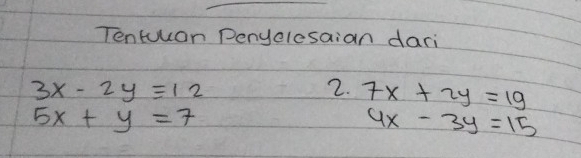 Tentukan Penyelesaian dari
3x - 2y = 12
5x + y = 7
2. 7x + 2y = 19
4x - 3y = 15